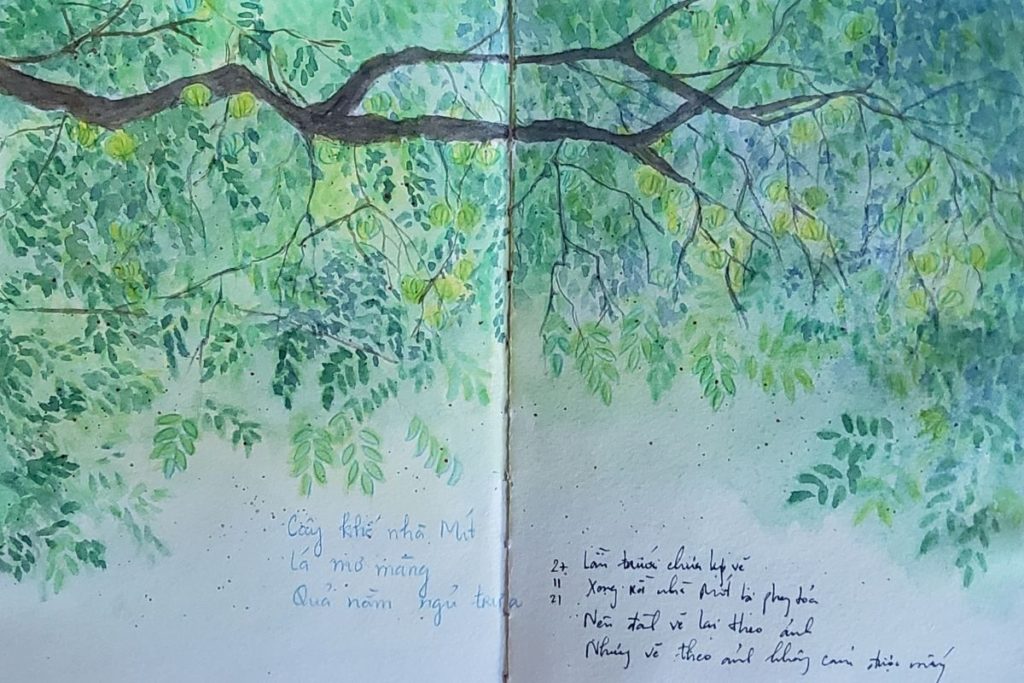 Cây khế nhà Mít
Lá mơ màng
Quả nằm ngủ trưa
27
11
21
Lần trước chưa kịp vẽ
Xong rồi nhà Mít bị phong tỏa
Nên đành vẽ lại theo ảnh
Nhưng vẽ theo ảnh không cảm được mấy